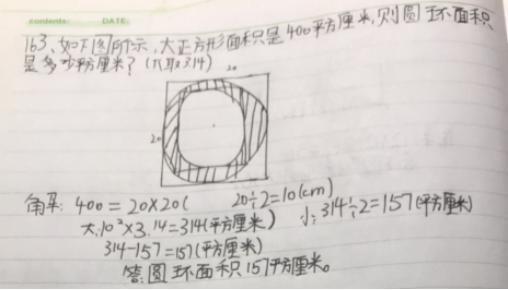 contents: DATE:
163、如下图所示,大正方形面积是400平方厘米,则圆环面积
是多少平方厘米?(π取3.14)
20
20
解: 400=20×20( 20÷2=10(cm)
大:10²×3.14=314(平方厘米) 小:314÷2=157(平方厘米)
314-157=157(平方厘米)
答:圆环面积157平方厘米。